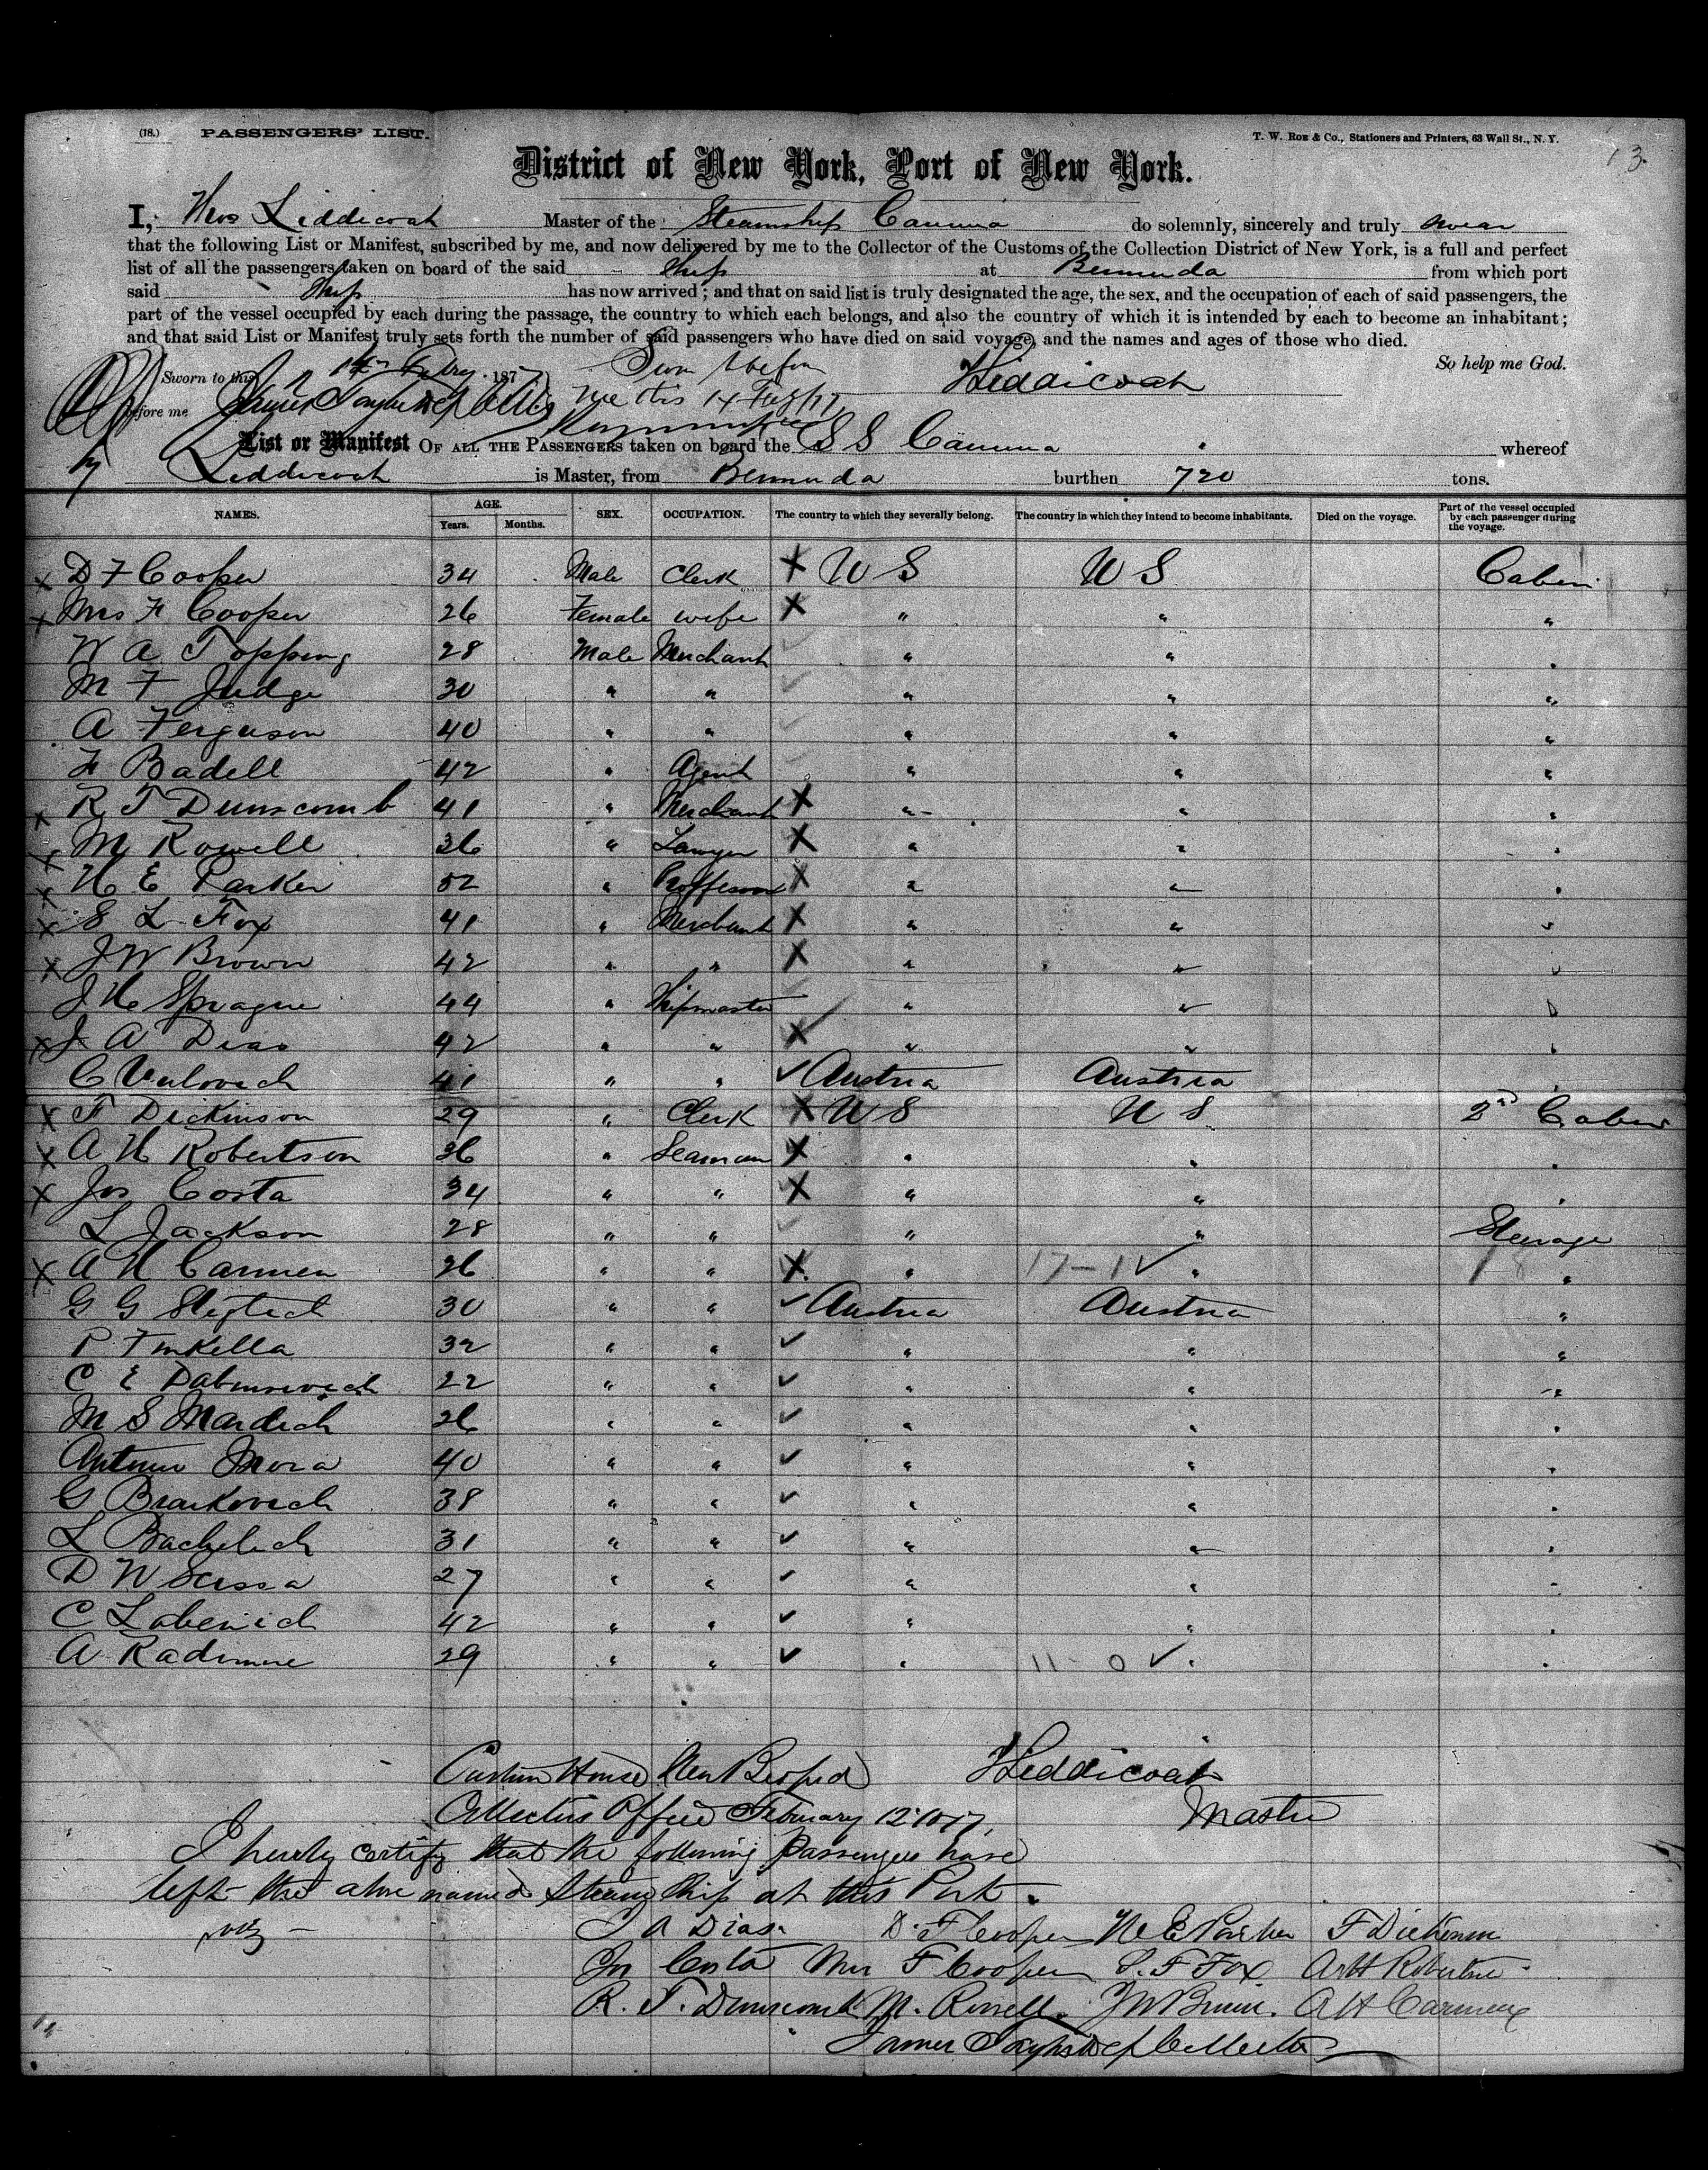 (18.) PASSENGERS' LIST.
T. W. ROE & Co., Stationers and Printers, 63 Wall St., N. Y.
13.
District of New York, Port of New York.
I, Thos Liddicoat Master of the Steamship Canima do solemnly, sincerely and truly swear
that the following List or Manifest, subscribed by me, and now delivered by me to the Collector of the Customs of the Collection District of New York, is a full and perfect
list of all the passengers taken on board of the said Ship at Bermuda from which port
said Ship has now arrived; and that on said list is truly designated the age, the sex, and the occupation of each of said passengers, the
part of the vessel occupied by each during the passage, the country to which each belongs, and also the country of which it is intended by each to become an inhabitant;
and that said List or Manifest truly sets forth the number of said passengers who have died on said voyage, and the names and ages of those who died.
So help me God.
Sworn to this 14th Febry 187
before me James Taylor Dep Coll
me this 14 Feb/77
TLiddicoat
List or Manifest OF ALL THE PASSENGERS taken on board the S S Canima whereof
Liddicoat is Master, from Bermuda burthen 720 tons.
NAMES. AGE. Years. Months. SEX. OCCUPATION. The country to which they severally belong. The country in which they intend to become inhabitants. Died on the voyage. Part of the vessel occupied by each passenger during the voyage.
x D F Cooper 34 Male Clerk X U S U S Cabin
x Mrs F Cooper 26 Female wife X " " "
W A Topping 28 Male Merchant ✓ " " "
M F Judge 30 " " ✓ " " "
A Ferguson 40 " " ✓ " " "
F Badell 42 " Agent " " "
x R T Dunscomb 41 " Merchant X " " "
x M Rowell 36 " Lawyer X " " "
x H E Parker 52 " Proffessor X " " "
x S L Fox 41 " Merchant X " " "
x J W Brown 42 " " X " " "
J H Sprague 44 " Shipmaster ✓ " " "
x J A Dias 42 " " X " " "
C Vulovich 41 " " ✓ Austria Austria "
x F Dickinson 29 " Clerk X U S U S 2nd Cabin
x A H Robertson 36 " Seaman X " " "
x Jos Costa 34 " " X " " "
L Jackson 28 " " ✓ " " Steerage
x A H Carmen 26 " " X " 17-1 ✓ " "
G G Slegtich 30 " " ✓ Austria Austria "
P Finkella 32 " " ✓ " " "
C E 22 " " ✓ " " "
M S Mardich 26 " " ✓ " " "
Mora 40 " " ✓ " " "
G Brackovich 38 " " ✓ " " "
L Bachelich 31 " " ✓ " " "
D W Scissa 27 " " ✓ " " "
C Labenich 42 " " ✓ " " "
A 29 " " ✓ " 11-0 ✓ " "
Custom House New Bedford
TLiddicoat
Collectors Office February 12 1877.
Master
I hereby certify that the following Passengers have
left the above named Steam Ship at this Port.
viz —
J A Dias. D. F Cooper H E Parker F Dickinson
Jos Costa Mrs F Cooper S. F Fox Art H Robertson
R. T. Dunscomb M. Rowell. J W Brown. A H Carmen
James Taylor Dep Collector